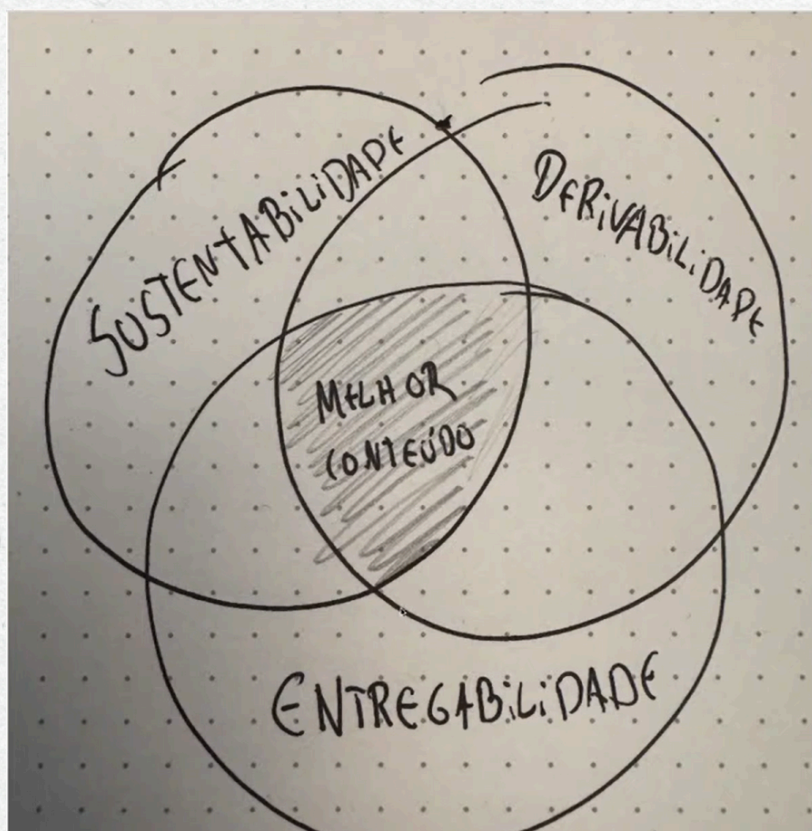 SUSTENTABILIDADE
DERIVABILIDADE
MELHOR
CONTEÚDO
ENTREGABILIDADE